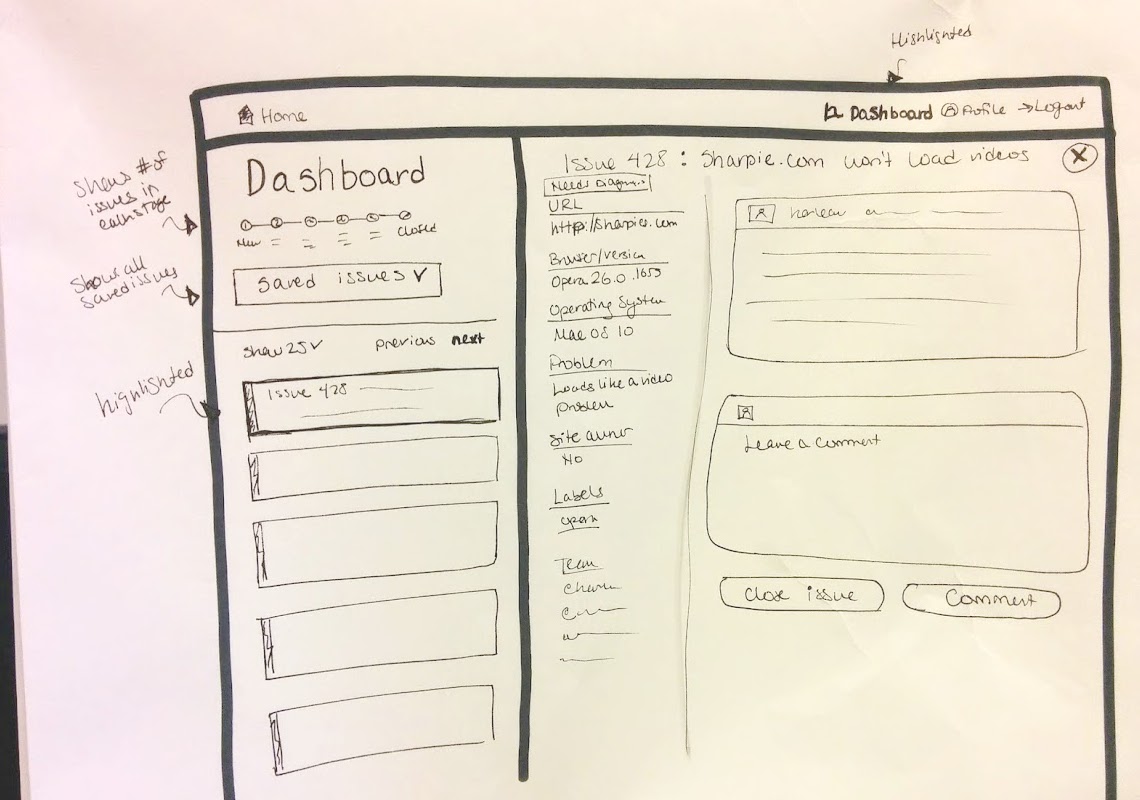 Highlighted
Home
Dashboard
Profile
Logout
Shows # of
issues in
each stage
Dashboard
New
Closed
Shows all
saved issues
Saved issues
Show 25
previous
next
highlighted
Issue 428
Issue 428 : Sharpie.com won't load videos
X
URL
http://sharpie.com
Browser/version
Opera 26.0.1653
Operating System
Mac OS 10
Problem
Loads like a video
problem
Site owner
No
Labels
opera
Team
Leave a comment
Close issue
Comment